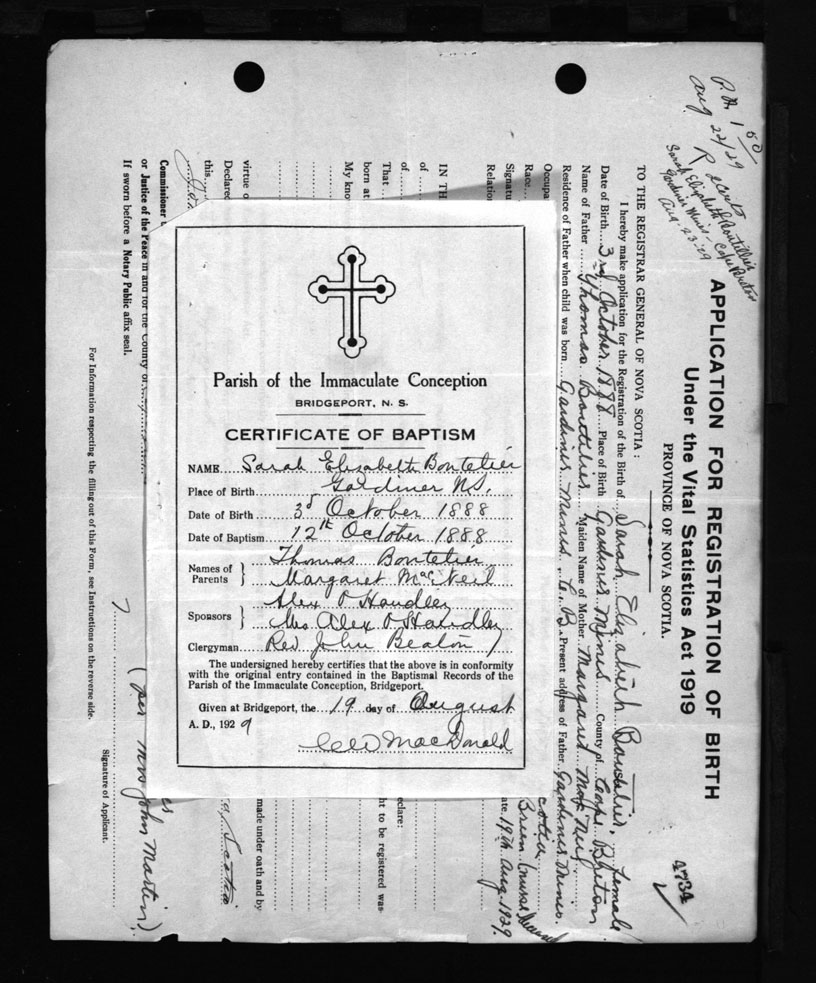 Parish of the Immaculate Conception
BRIDGEPORT, N. S.
CERTIFICATE OF BAPTISM
NAME.... Sarah Elisabeth Boutelier
Place of Birth.... Gardiner N.S.
Date of Birth.... 3d October 1888
Date of Baptism.... 12th October 1888
Names of Parents } Thomas Boutelier
Margaret MacNeil
Sponsors } Alex O Handley
Mrs Alex O Handley
Clergyman.... Rev John Beaton
The undersigned hereby certifies that the above is in conformity
with the original entry contained in the Baptismal Records of the
Parish of the Immaculate Conception, Bridgeport.
Given at Bridgeport, the....19....day of August
A. D., 1929
MacDonald
P.N. 1 50
Aug 22/29
Sarah Elizabeth Boutilier
Gardiner Mines - Cape Breton
Aug. 23. 29
4734
APPLICATION FOR REGISTRATION OF BIRTH
Under the Vital Statistics Act 1919
PROVINCE OF NOVA SCOTIA.
TO THE REGISTRAR GENERAL OF NOVA SCOTIA :
I hereby make application for the Registration of the Birth of Sarah Elizabeth Boutilier, Female
Date of Birth.... 3rd October 1888 Place of Birth Gardiner Mines County of Cape Breton
Name of Father.... Thomas Boutilier Maiden Name of Mother Margaret MacNeil
Residence of Father when child was born.... Gardiner Mines, C. B. Present address of Father Gardiner Mines.
Occupa
Race
cotia
Signatu
ate 19th Aug. 1929.
Relatio
IN TH
of
of
eclare:
That
ht to be registered was
born at
My kno
virtue o
made under oath and by
Declare
this
Commissioner
or Justice of the Peace in and for the County of
If sworn before a Notary Public affix seal.
(per Mrs John Martin)
Signature of Applicant.
For Information respecting the filling out of this Form, see Instructions on the reverse side.